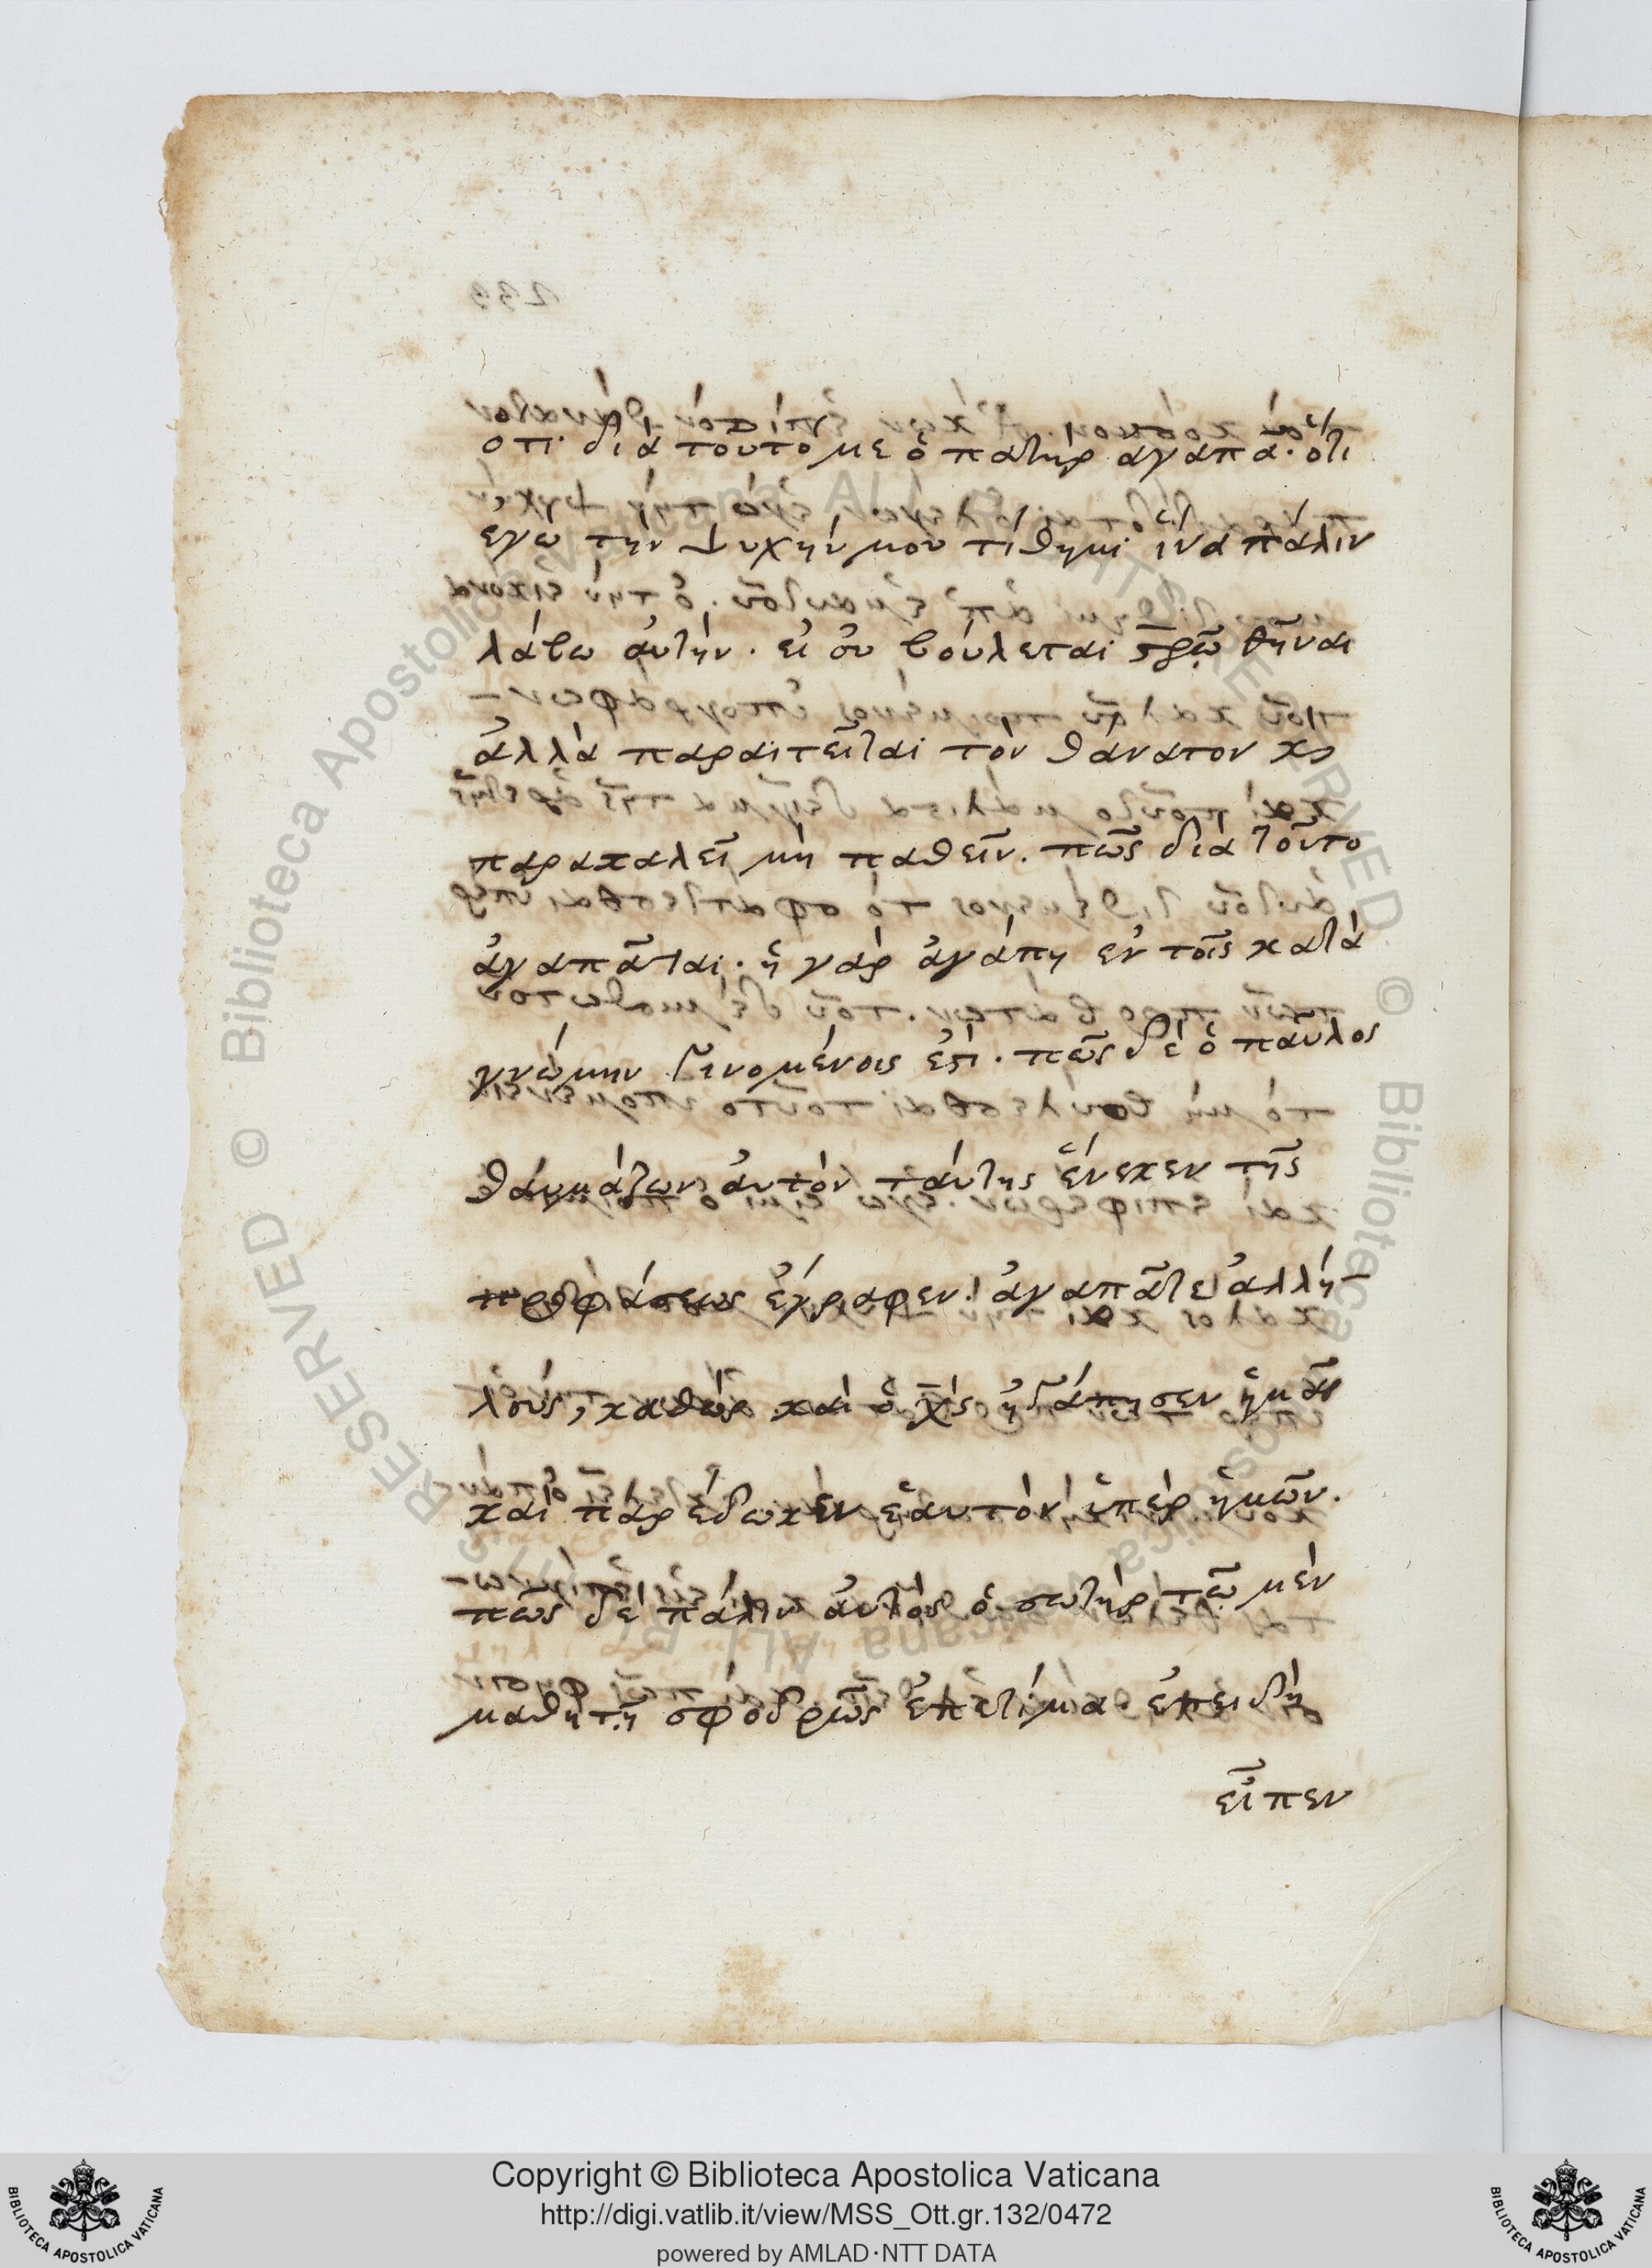 ὅτι διὰ τοῦτο με ὁ πατὴρ ἀγαπᾶ· ὅτι
ἐγὼ τὴν ψυχήν μου τίθημι ἵνα πάλιν
λάβω ἀυτήν. εἰ οὐ βούλεται σ̅ρ̅ω̅θῆναι
ἀλλὰ παραιτεῖται τὸν θάνατον κ̀
παρακαλεῖ μὴ παθεῖν. πῶς διὰ τοῦτο
ἀγαπᾶται. ἡ γὰρ ἀγάπη ἐν τοῖς κατὰ
γνώμην γινομένοις ἐστί. πῶς δὲ ὁ παῦλος
θάυμάζων ἀυτὸν τάυτης ἕνεκεν τῆς
προφάσεως ἔγραφεν· ἀγαπᾶτε ἀλλή-
λους, καθὼς καὶ ὁ χ̅ς̅ ἠγάπησεν ἡμᾶς
καὶ παρέδωκεν ἑαυτὸν ὑπὲρ ἡμῶν.
πῶς δὲ πάλιν ἀυτὸς ὁ σωτὴρ τῶ μὲν
μαθητῆ σφοδρῶς ἐπετίμα. ἐπειδὴ
εἶπεν
Copyright © Biblioteca Apostolica Vaticana
http://digi.vatlib.it/view/MSS_Ott.gr.132/0472
powered by AMLAD·NTT DATA
BIBLIOTECA APOSTOLICA VATICANA
BIBLIOTECA APOSTOLICA VATICANA